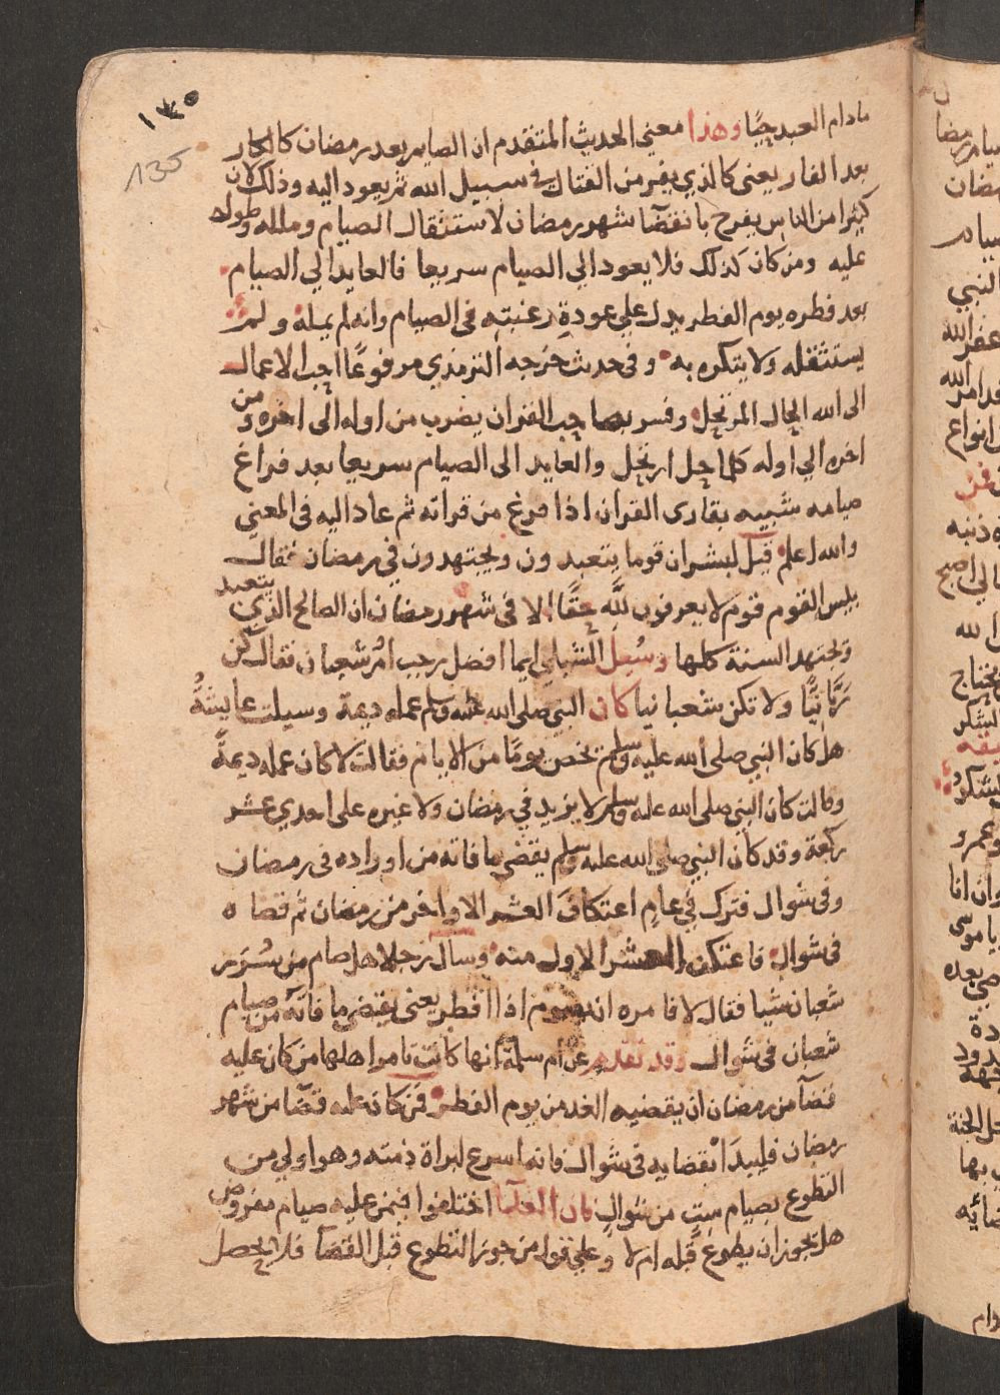 ١٣٥
135
مادام العبد حيًّا وهذا معني الحديث المتقدم ان الصايم بعد رمضان كالكار
بعد الفار يعنى كالذي يفر من القتال في سبيل الله ثم يعود اليه وذلك لان
كثيرا من الناس يفرح بانقضآ شهر رمضان لاستثقال الصيام وملله وطوله
عليه ومن كان كذلك فلا يعود الي الصيام سريعا فالعايد الي الصيام
بعد فطره يوم الفطر يدل علي عودة رغبته فى الصيام وانه لم يمله ولم
يستثقله ولا يتكره به وفى حديث خرجه الترمذي مرفوعًا احب الاعمال
الى الله الحال المرتحل وفسر بصاحب القران يضرب من اوله الى اخره ومن
اخره الي اوله كلما حل ارتحل والعايد الى الصيام سريعا بعد فراغ
صيامه شبيه بقارى القران اذا فرغ من قراته ثم عاد اليه فى المعني
والله اعلم قيل لبشر ان قوما يتعبدون ويجتهدون في رمضان فقال
بيس القوم قوم لا يعرفون للّه حقًا الا فى شهر رمضان ان الصالح الذي يتعبد
ويجتهد السنة كلها وسُيل الشبلي ايما افضل رجب ام شعبان فقال كن
رَبَّانيًّا ولا تكن شعبانيا كان النبي صلى الله عليه وسلم عمله ديمة وسيلت عايشةُ
هل كان النبي صلى الله عليه وسلم يخص يومًا من الايام فقالت لا كان عمله ديمةً
وقالت كان النبي صلى الله عليه وسلم لا يزيد في رمضان ولا غيره على احدي عشر
ركعة وقد كان النبي صلى الله عليه وسلم يقضى ما فاته من اوراده فى رمضان
وفى شوال فترك في عام اعتكاف العشر الاواخر من رمضان ثم قضاه
فى شوال فاعتكف العشر الاول منه وسال رجلا هل صام من سُرَر
شعبان شيا فقال لا فامره ان يصوم اذا افطر يعنى يقضى ما فاته من صيام
شعبان فى شوال وقد تقدم عن ام سلمة انها كانت تامر اهلها من كان عليه
قضآ من رمضان ان يقضيه الغد من يوم الفطر فمن كان عليه قضآ من شهر
رمضان فليبدَا بقضايه فى شوال فانه اسرع لبراة ذمته وهو اولي من
التطوع بصيام ستٍ من شوال فان العلما اختلفوا فيمن عليه صيام مفروض
هل يجوز ان يطوع قبله ام لا وعلي قول من جوز التطوع قبل القضآ فلا يحصل